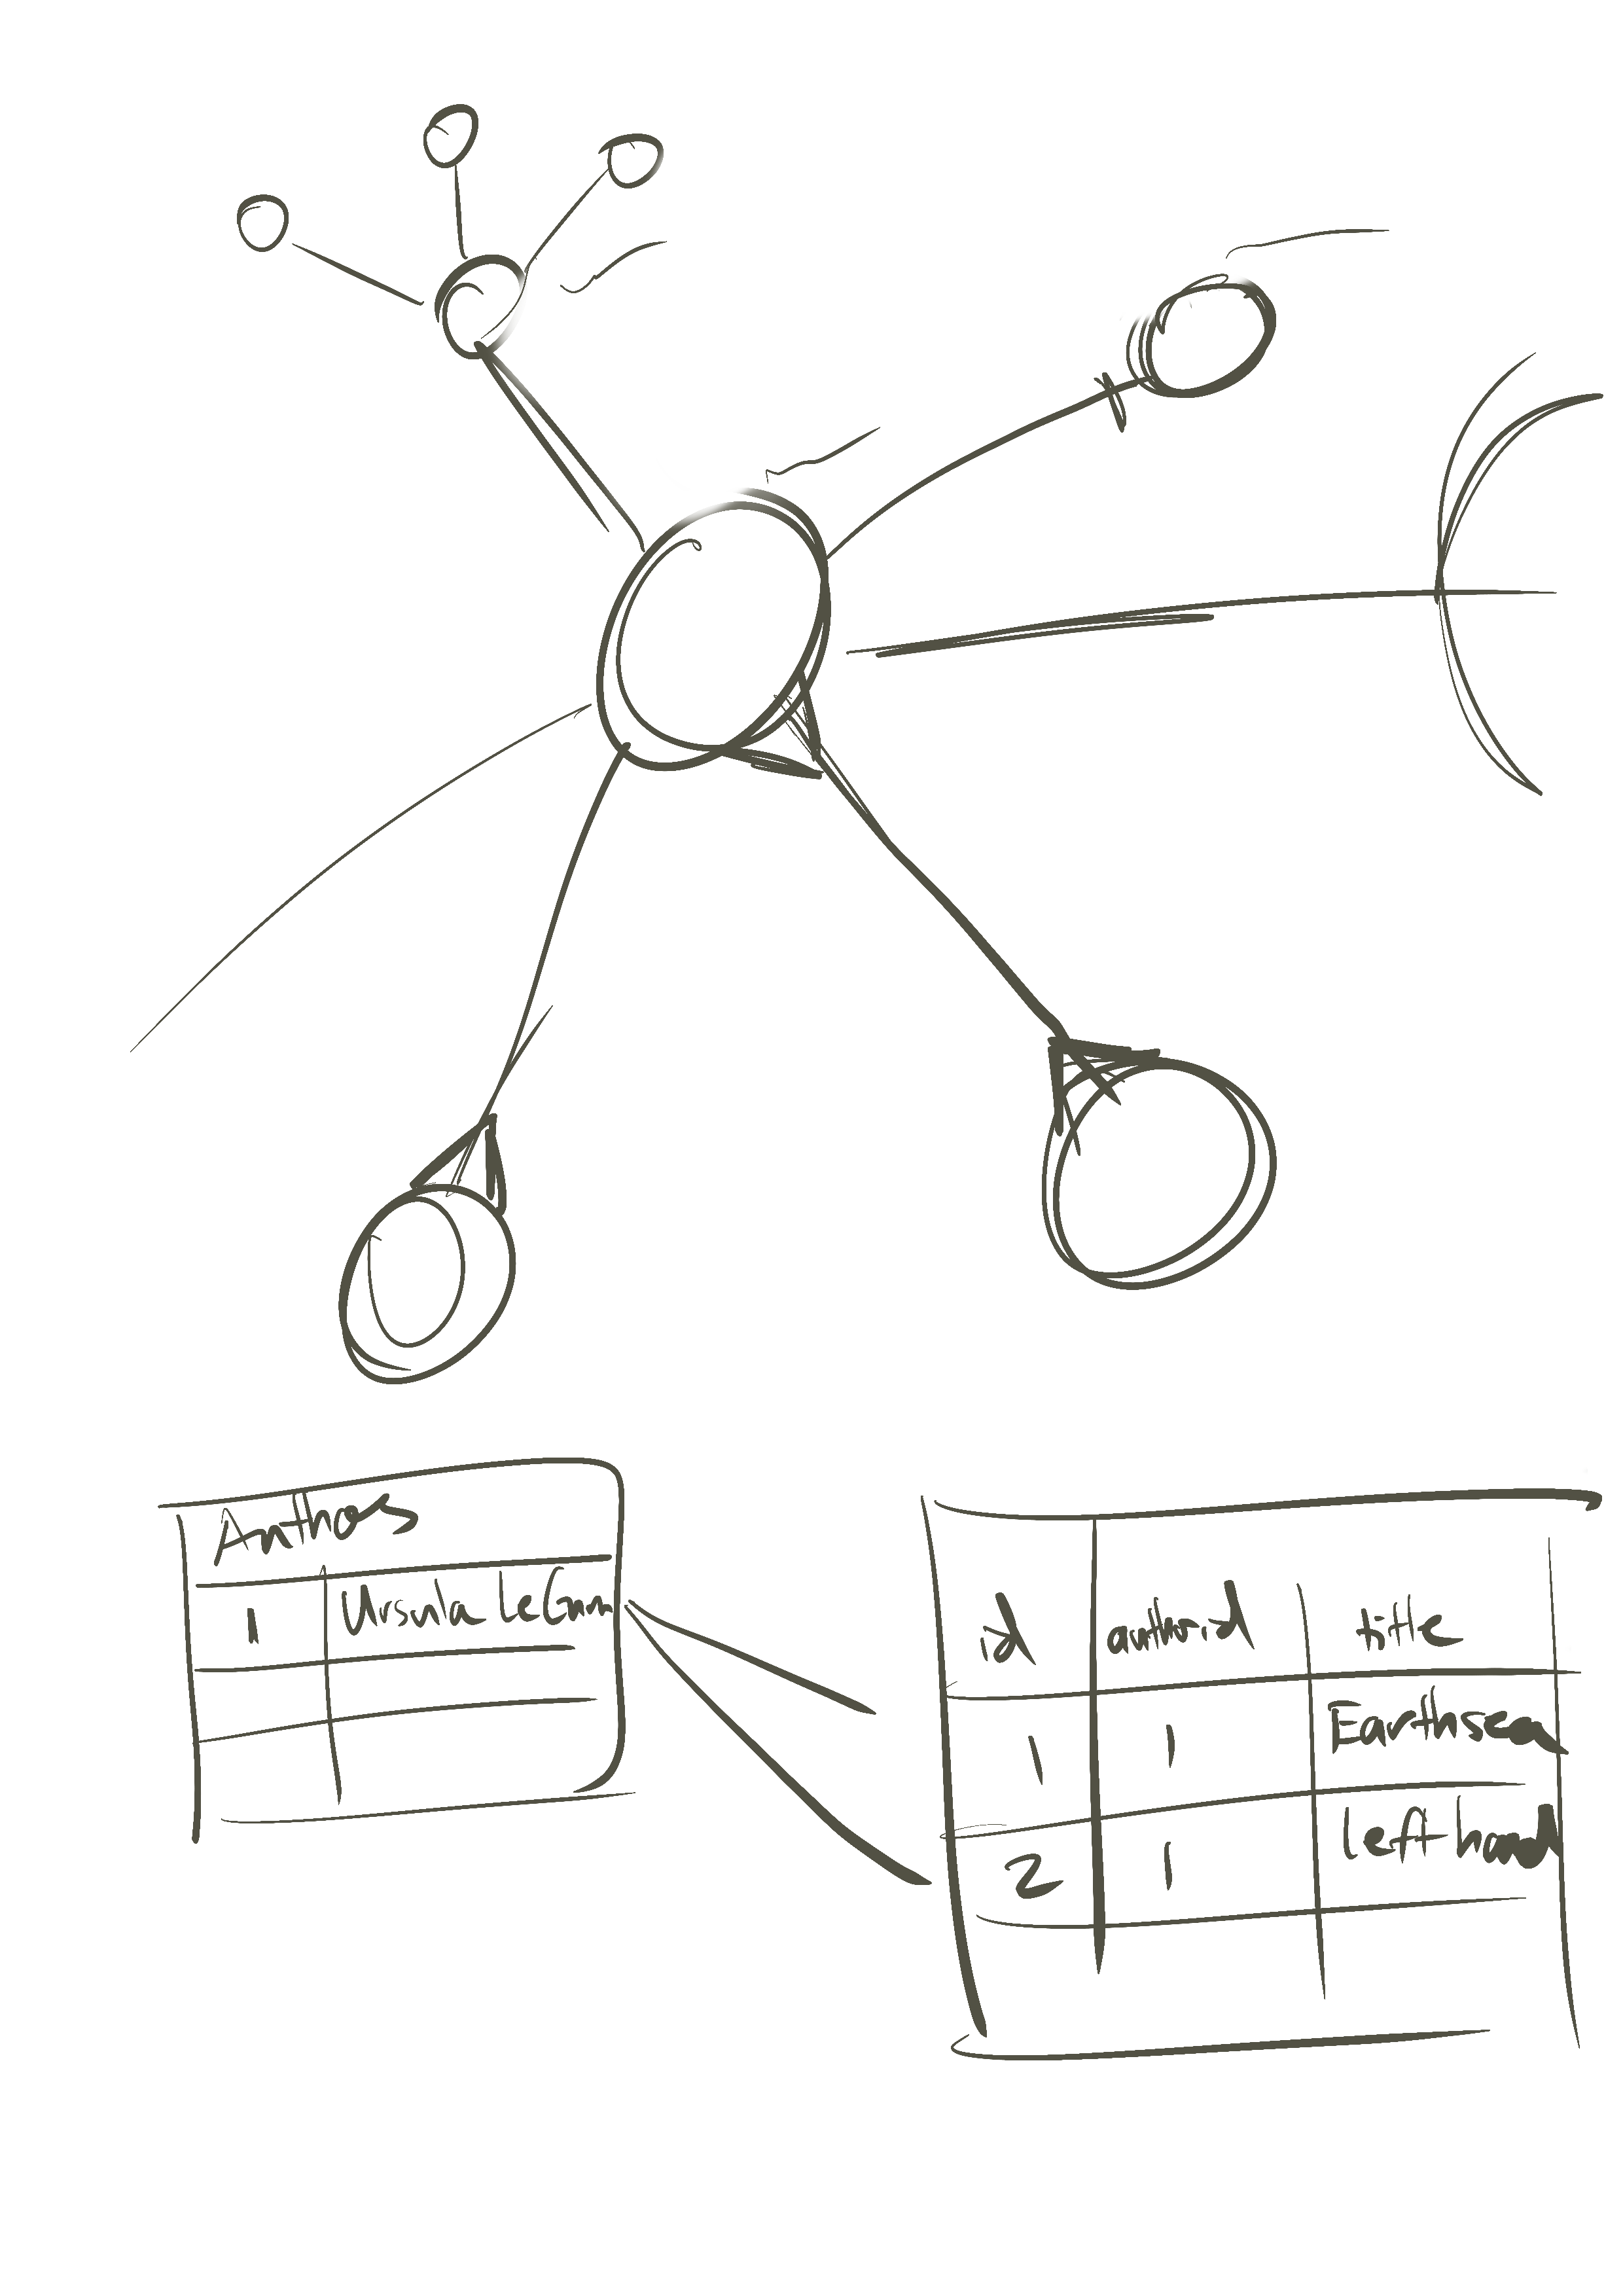 Authors
1 Ursula LeGuin
id authorid title
1 1 Earthsea
2 1 left hand